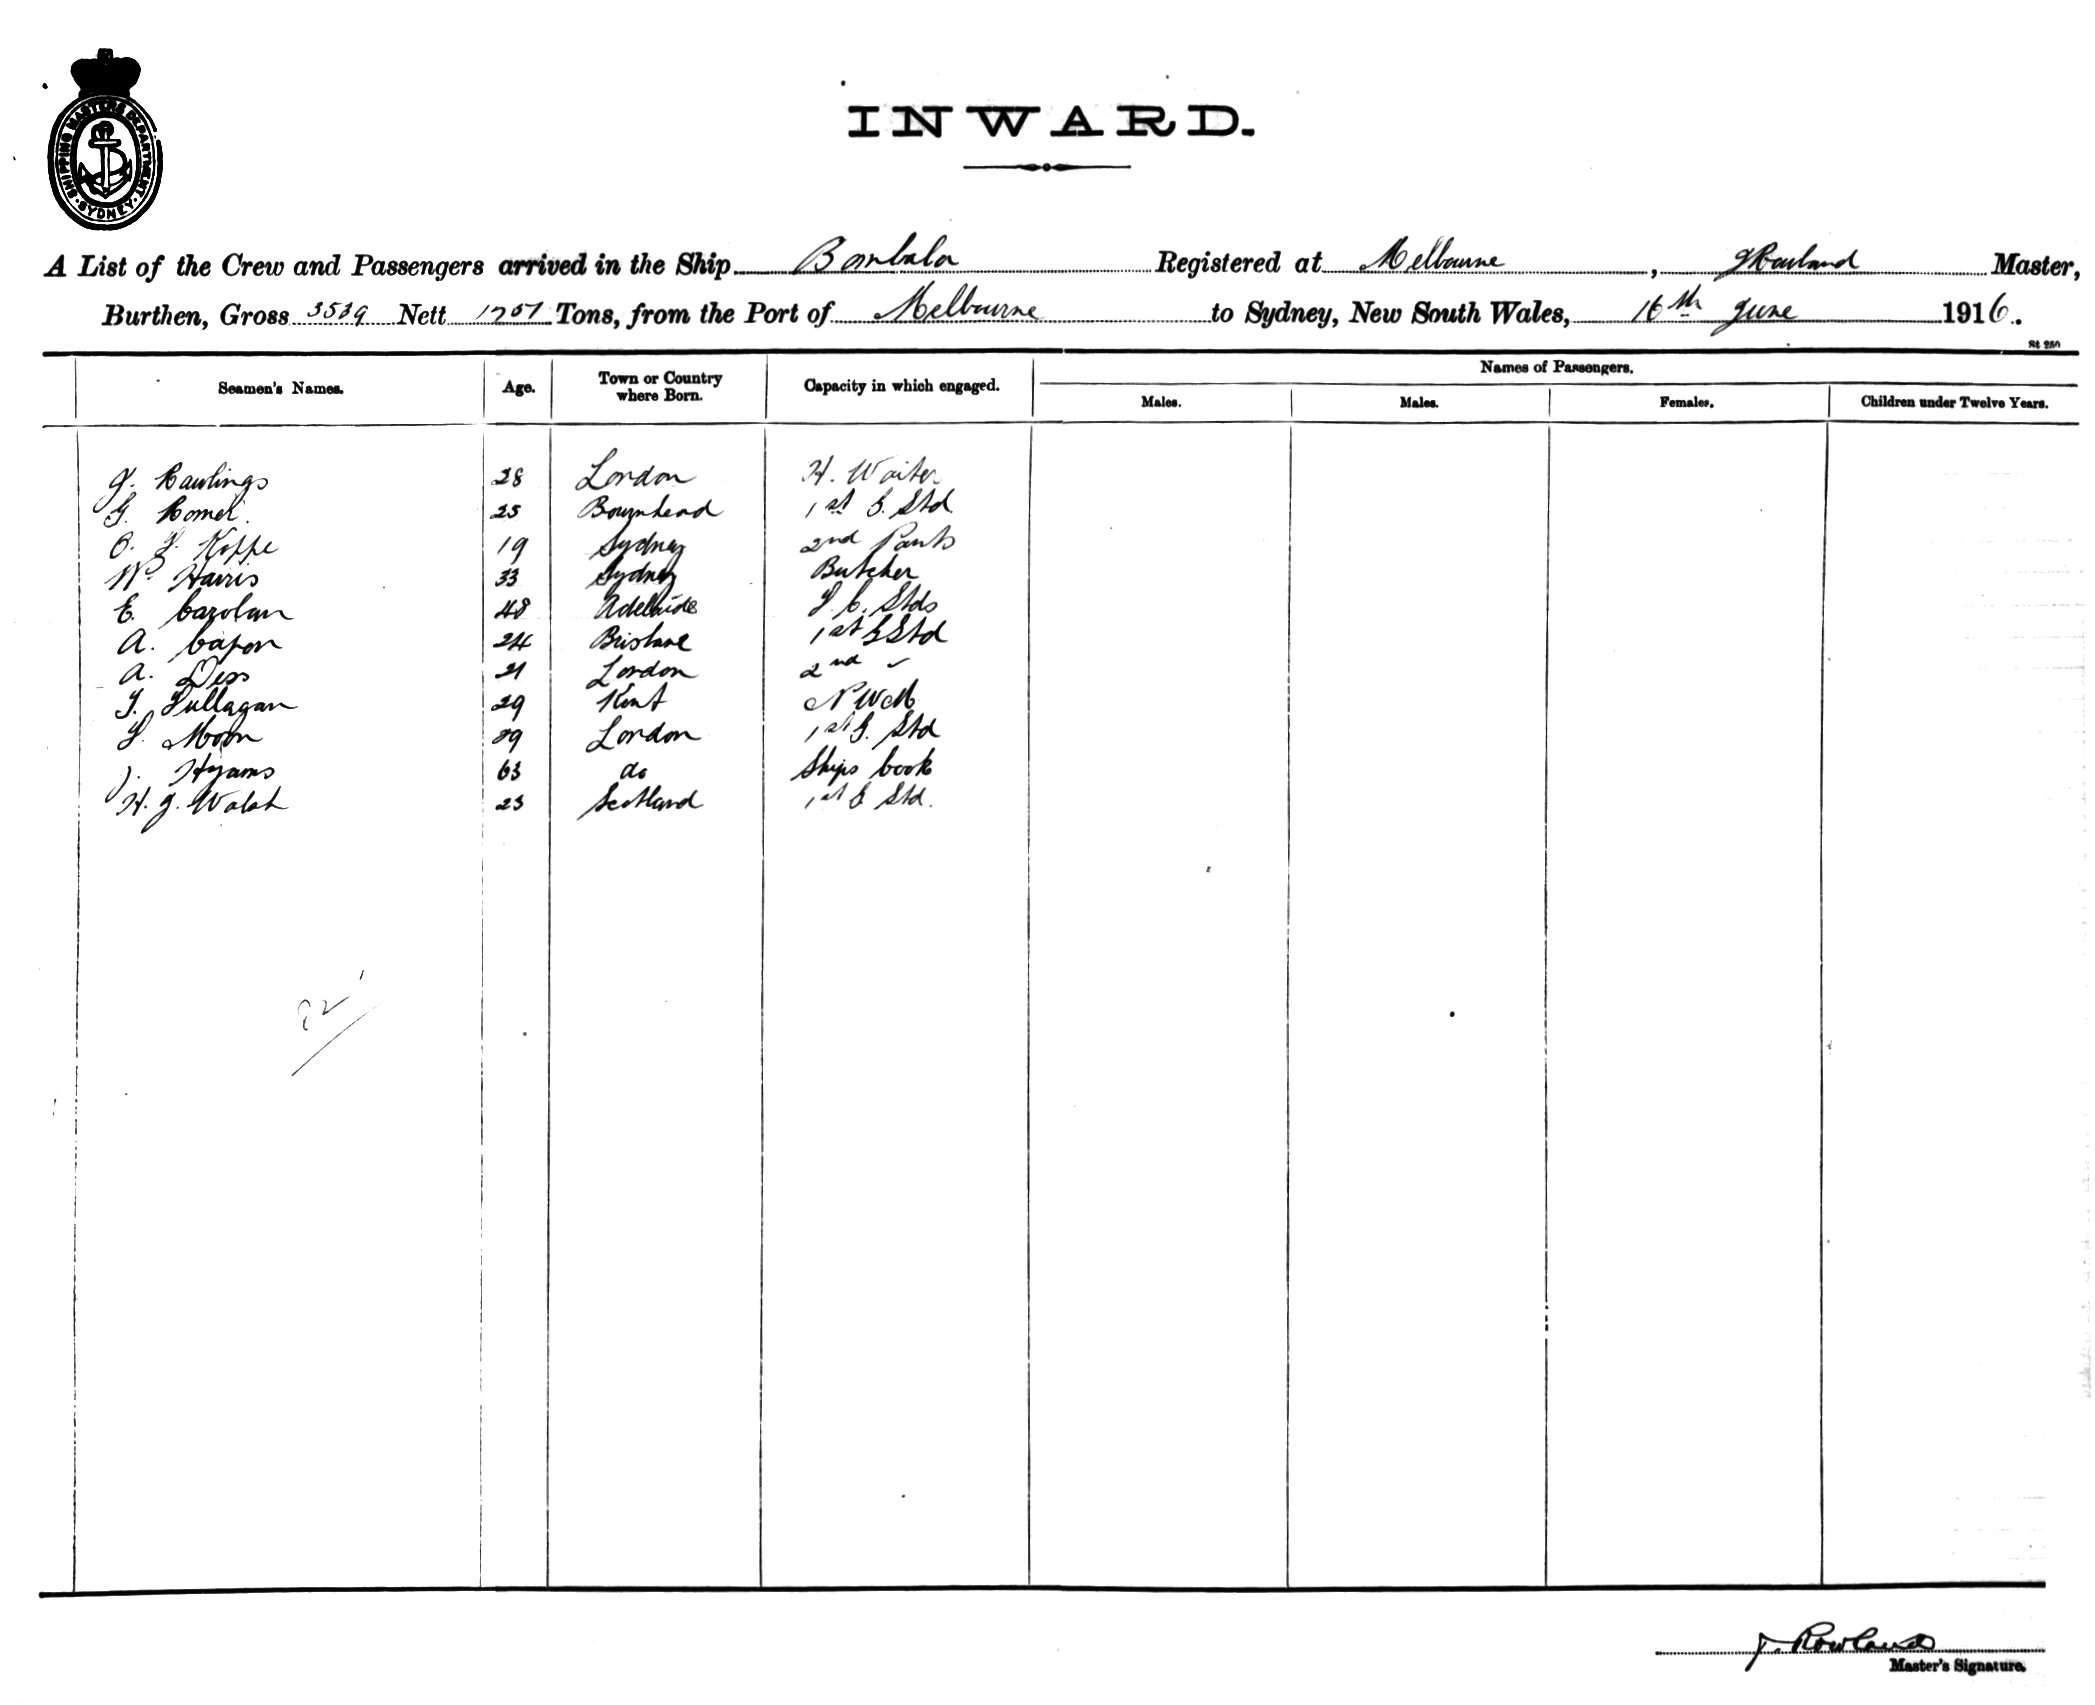 SHIPPING MASTERS DEPARTMENT
SYDNEY
INWARD.
A List of the Crew and Passengers arrived in the Ship Bombala Registered at Melbourne, J Rowland Master,
Burthen, Gross 3539 Nett Tons, from the Port of Melbourne to Sydney, New South Wales, 16th June 1916.
St 250
Seamen's Names. Age. Town or Country where Born. Capacity in which engaged. Names of Passengers.
Males. Males. Females. Children under Twelve Years.
J. Rawlings 28 London H. Waiter
G. Homer. 25 1st S. Std
O. L. Koppe 19 Sydney 2nd Pants
W. Harris 33 Sydney Butcher
E. Carolan 48 Adelaide Stds
A. Capon 24 Brisbane 1st S Std
A. 21 London 2nd
Fullagan 29 Kent N W M
Moon London 1st S. Std
J. Hyams 63 do Ships Cook
H. J. Walsh 23 Scotland 1st Std.
82
J. Rowland
Master's Signature.